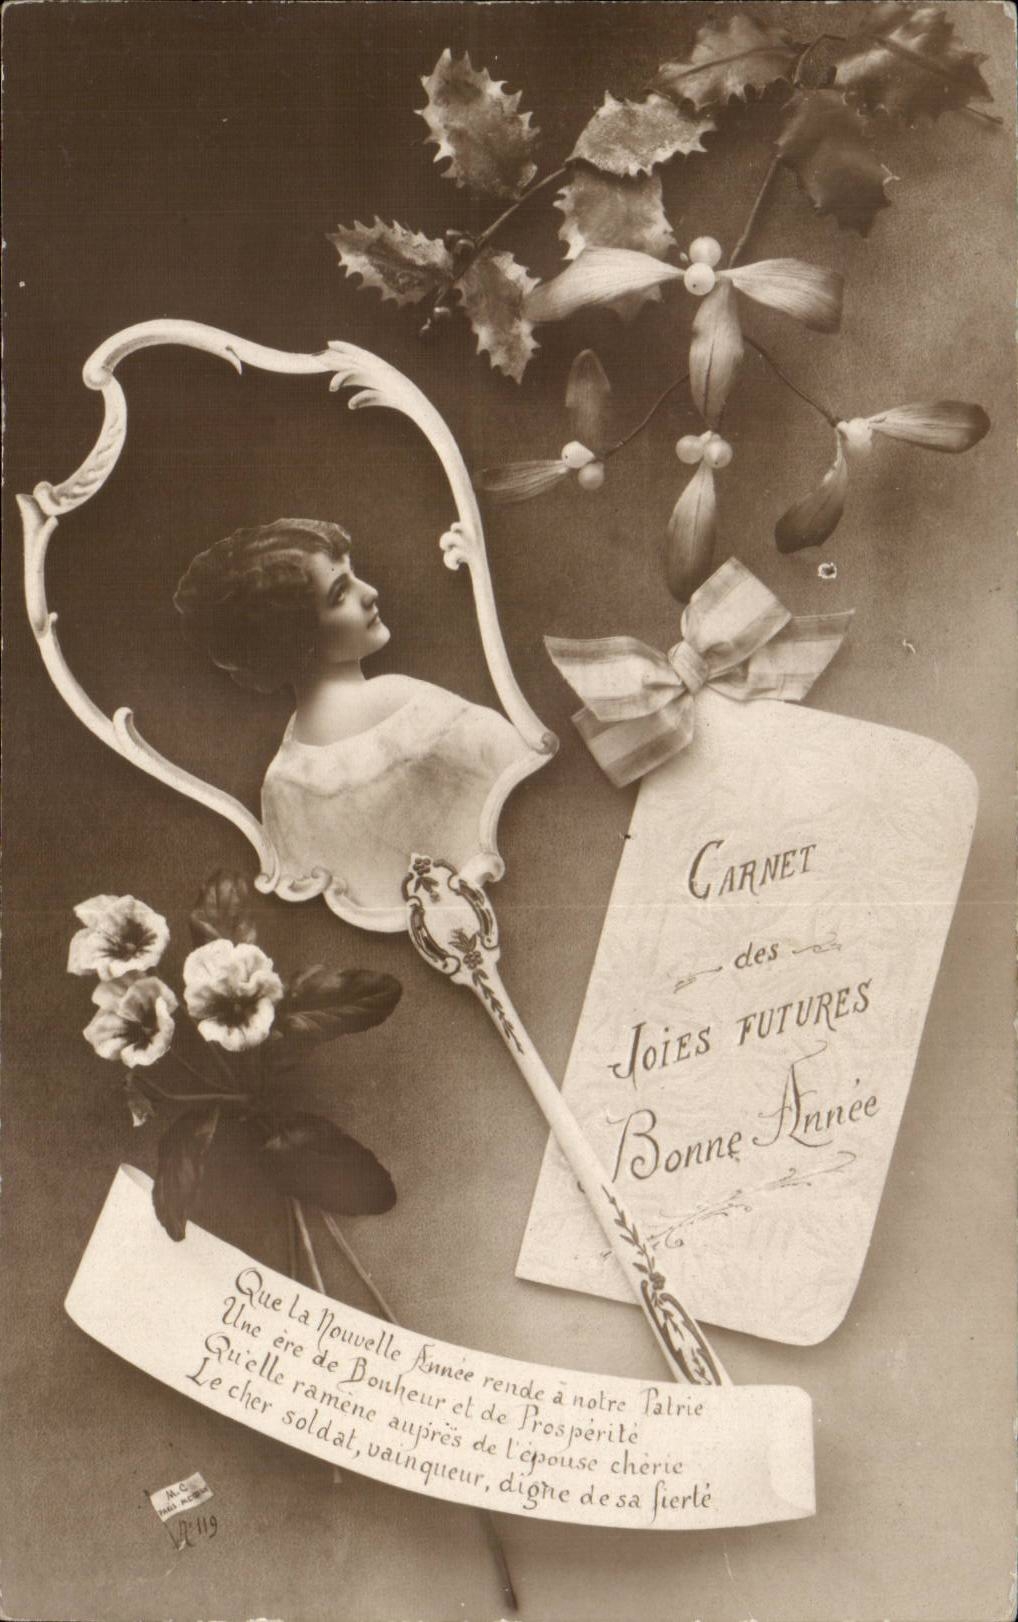 CARNET
des
JOIES FUTURES
Bonne Année
Que la Nouvelle Année rende à notre Patrie
Une ère de Bonheur et de Prospérité
Qu'elle ramène auprès de l'épouse chérie
Le cher soldat, vainqueur, digne de sa fierté
M.C.
PARIS
N° 119